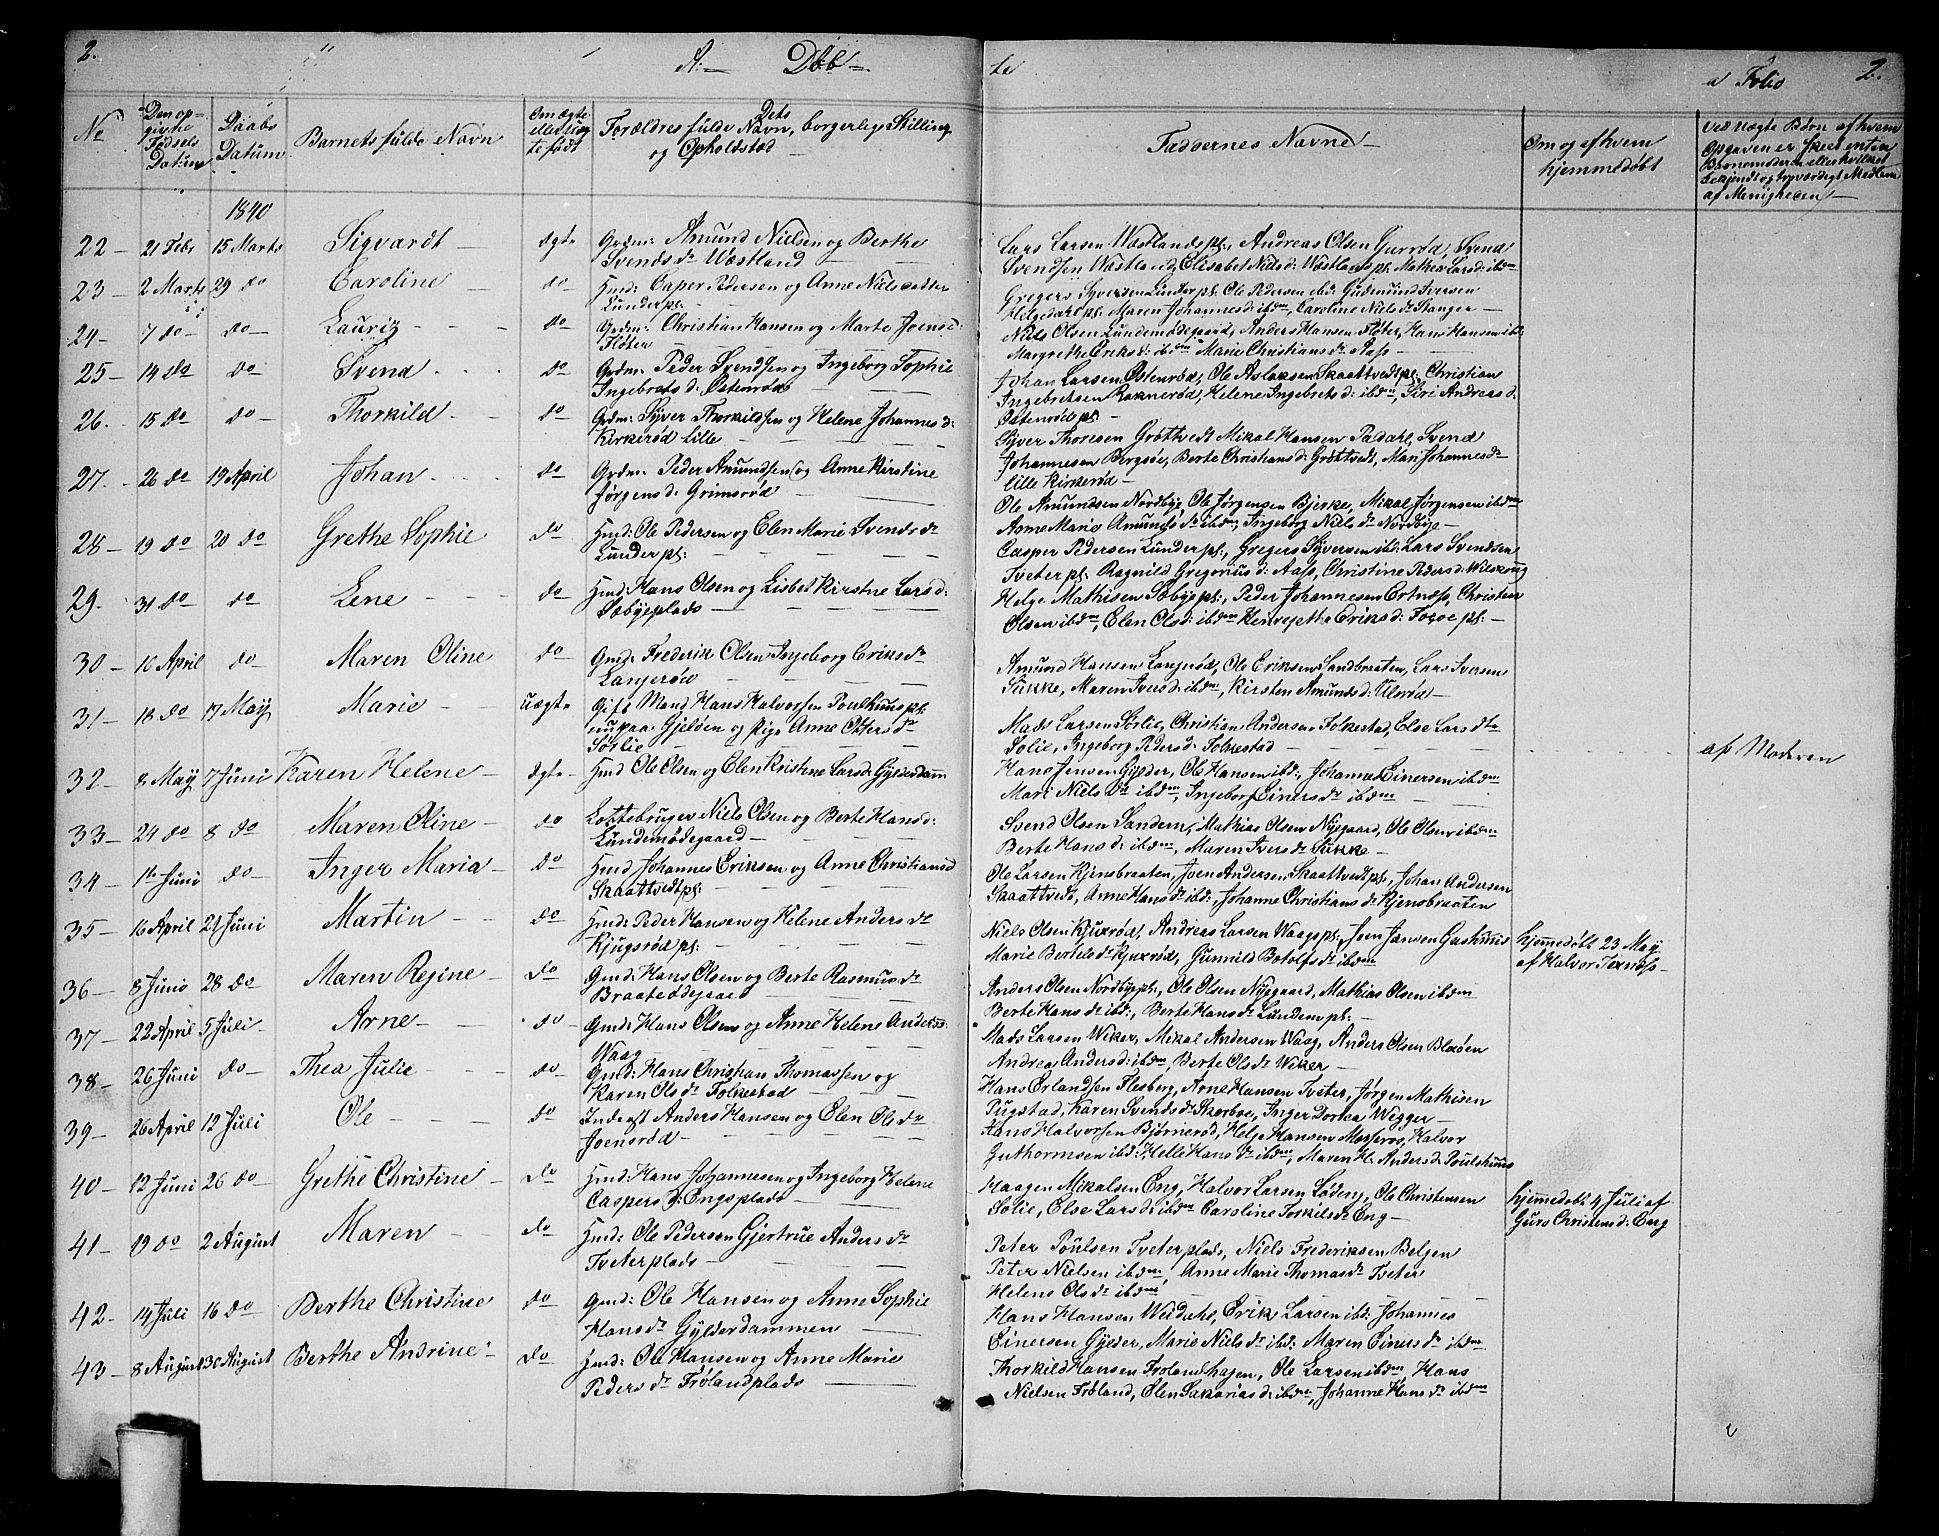 2. A:— Døb— te a Folio 2.
No
Den op-
givne
Fødsels
Datum
Daabs
Datum
Barnets fulde Navn
Om ægte
eller uæg
te født
Forældres fulde Navn, Dets borgerlige Stilling
og Opholdsted
Faddernes Navne
Om og af hvem
hjemmedøbt
Ved uægte Børn af hvem
Opgaven er skeet enten
Barnemoderen eller hvilket
bekjendt og troværdigt Medlem
af Menigheden
1840
22 — 21 Febr 15 Marts Sigvardt — ægte Grdm: Amund Nielsen og Berthe
Svends dr Wæstland
Lars Larsen Wæstlandspl:, Andreas Olsen Gurrød, Svend
Svendsen Wæstland, Elisabet Niels d: Wæstlands pl: Mathea Lars d: ibdm
23 — 2 Marts 29 do Caroline — do Hmd: Caper Pedersen og Anne Niels datter
Lunder pl:
Gregers Syversen Lunder pl: Ole Pedersen ibd: Gudmund Iversen
Helgedahl pl: Maren Johannes d: ibdm, Caroline Niels dr Stanger —
24 — 7 do — do — Lauriz — do Grdm: Christian Hansen og Marte Joens d:
Fløter
Niels Olsen Lundemødegaard, Anders Hansen Fløter, Hans Hansen ibd:
Margrethe Eriks d: ibdm Marie Christians dr Aass
25 — 14 do do Svend do Grdm: Peder Svendsen og Ingeborg Sophie
Ingebrets d: Østenrød
Johan Larsen Østenrød, Ole Aslaksen Skaattvedt pl: Christian
Ingebretsen Roknerød, Helene Ingebrets d: ibdm, Siri Andreas d:
Østenrød pl: —
26. 15 do do — Thorkild — do Grdm: Syver Thorkildsen og Helene Johannes d:
Kirkerød Lille
Syver Thoresen Grøttvedt Mikal Hansen Padahl, Svend
Johannesen Bergsøe, Berte Christians d: Grøttvedt, Mari Johannes dr
Lille Kirkerød —
27. 26 do 19 April Johan do Grdm: Peder Amundsen og Anne Kirstine
Jørgens d: Grimsrød
Ole Amundsen Nordbye, Ole Jørgensen Bjerke, Mikal Jørgensen ibdm
Anne Marie Amunds dr ibdm, Ingeborg Niels dr Nordbye —
28 — 19 do 20 do Grethe Sophie do Hmd: Ole Pedersen og Elen Marie Svends dr
Lunder pl:
Casper Pedersen Lunder pl:, Gregers Syversen ibd: Lars Svendsen
Tveter pl: Ragnild Gregorius d: Aass, Christine Peders d:
29. 31 do do Lene do — Hmd: Hans Olsen og Lisbet Kirstne Lars d:
Søbyeplads
Helge Mathisen Søbyepl:, Peder Johannesen Ertnæss, Christen
Olsen ibdm, Elen Ols d: ibdm Eriks d: pl: —
30 — 10 April do Maren Oline do Gmd: Frederik Olsen Ingeborg Eriks dr
Langerød
Amund Hansen Langerød, Ole Eriksen Sandbraaten, Lars Iversen
Sukke, Maren Ivers d: ibdm, Kirsten Amunds d: Ulerød —
31 — 18 do 17 May Marie — uægte Gift Mand Hans Halvorsen Poulshuus pl:
nu paa Gjelden og Pige Anne Otters dr
Sørlie
Mads Larsen Sørlie, Christian Andersen Folkestad, Else Lars dr
Solie, Ingeborg Peders d: Folkestad
af Moderen
32 — 8 May 7 Juni Karen Helene — ægte — Hmd Ole Olsen og Elen Kristine Lars d: Gylderdamm
Hans Jensen Gylder, Ole Hansen ibd:, Johannes Einersen ibdm
Mari Niels dr ibdm, Ingeborg Einers dr ibdm
33 — 24 do 8 do Maren Oline — do Lottebruger Niels Olsen og Berte Hans d:
Lundemødegaard —
Svend Olsen Sandem, Mathias Olsen Nyegaard, Ole Olsen ibdm
Berte Hans d: ibdm, Maren Ivers dr Sukke —
34 — 1ste Juni do — Inger Maria — do Hmd Johannes Eriksen og Anne Christians d
Skaattvedt pl:
Ole Larsen Kjensbraaten, Joen Andersen Skaattvedt pl:, Johan Andersen
Skaattvedt, Anne Hans dr ibd:, Johanne Christians dr Kjensbraaten
35 — 16 April 21 Juni Martin — do — Hmd: Peder Hansen og Helene Anders dr
Kjugsrød pl:
Niels Olsen Kjuxrød, Andreas Larsen Waags pl:, Joen Jansen
Marie Bertels dr Kjuxrød, Gunnild Botolfs dr ibdm
hjemedøbt 23 May
af Halvor
36 — 8 Juni 28 do Maren Regine — do Gmd: Hans Olsen og Berte Rasmus dr
Braatødegaard
Anders Olsen Nordbye pl:, Ole Olsen Nyegaard, Mathias Olsen ibdm
Berte Hans d: ibd:, Berte Hans dr Lundem pl: —
37 — 22 April 5 Juli Arne — do — Gmd: Hans Olsen og Anne Helene Anders d:
Waag
Mads Larsen Wiker, Mikal Andersen Waag, Anders Olsen Bloxøen
Andrea Anders d: ibdm, Berte Ols dr Wiker —
38 — 26 Juni do — Thea Julie — do — Gmd: Hans Christian Thomassen og
Karen Ols dr Folkestad
Hans Erlandsen Flesberg, Arne Hansen Tveter, Jørgen Mathisen
Pugstad, Karen Svends dr Skorboe, Inger Dorthea Wegger —
39 — 26 April 12 Juli Ole — do Inderst Anders Hansen og Elen Ols dr
Joensrød —
Hans Halvorsen Bjørnerød, Helje Hansen Mosserød, Halvor
Guthormsen ibd: Helle Hans dr ibdm, Maren H. Anders d: Poulshuus
40 — 12 Juni 26 do Grethe Christine — do Hmd: Hans Johannesen og Ingeborg Helene
Caspers d: Engsplads
Haagen Mikalsen Eng, Halvor Larsen Løden, Ole Christensen
Solie, Else Lars d: ibdm Caroline Torkils dr Eng —
hjemedøbt 4 Juli af
Guro Christens d: Eng
41 — 19 do 2 August Maren — do Hmd: Ole Pedersen Gjertrue Anders dr
Tveterplads —
Peter Poulsen Tveterplads, Niels Frederiksen Beljen
Peter Nielsen ibdm, Anne Marie Thomas dr Tveter
Helene Ols dr ibdm
42 — 14 Juli 16 do Berthe Christine do Gmd: Ole Hansen og Anne Sophie
Hans dr Gylderdammen
Hans Hansen Weidahl, Erik Larsen ibd: Johannes
Einersen Gylder, Marie Niels dr ibd: Maren Einers dr ibdm
43 — 8 August 30 August Berthe Andrine do Hmd: Ole Hansen og Anne Marie
Peders dr Frølandplads
Thorkild Hansen Frolandhagen, Ole Larsen ibdm, Hans
Nielsen Frøland, Elen Sakarias d: ibdm, Johanne Hans dr ibdm